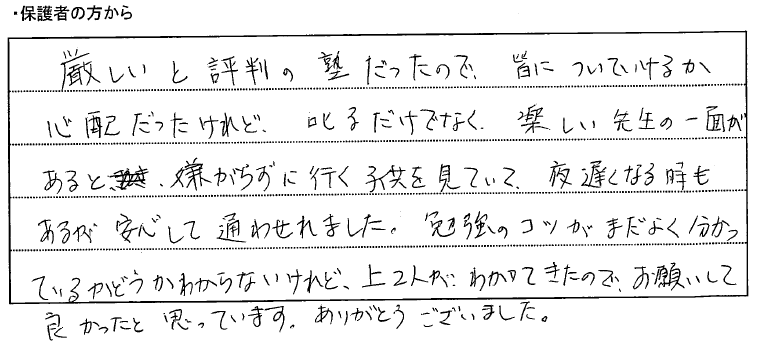 ・保護者の方から
厳しいと評判の塾だったので、皆についていけるか
心配だったけれど、叱るだけでなく、楽しい先生の一面が
あると、嫌がらずに行く子供を見ていて、夜遅くなる時も
あるが安心して通わせれました。勉強のコツがまだよく分かっ
ているかどうかわからないけれど、上2人が、わかってきたので、お願いして
良かったと思っています。ありがとうございました。